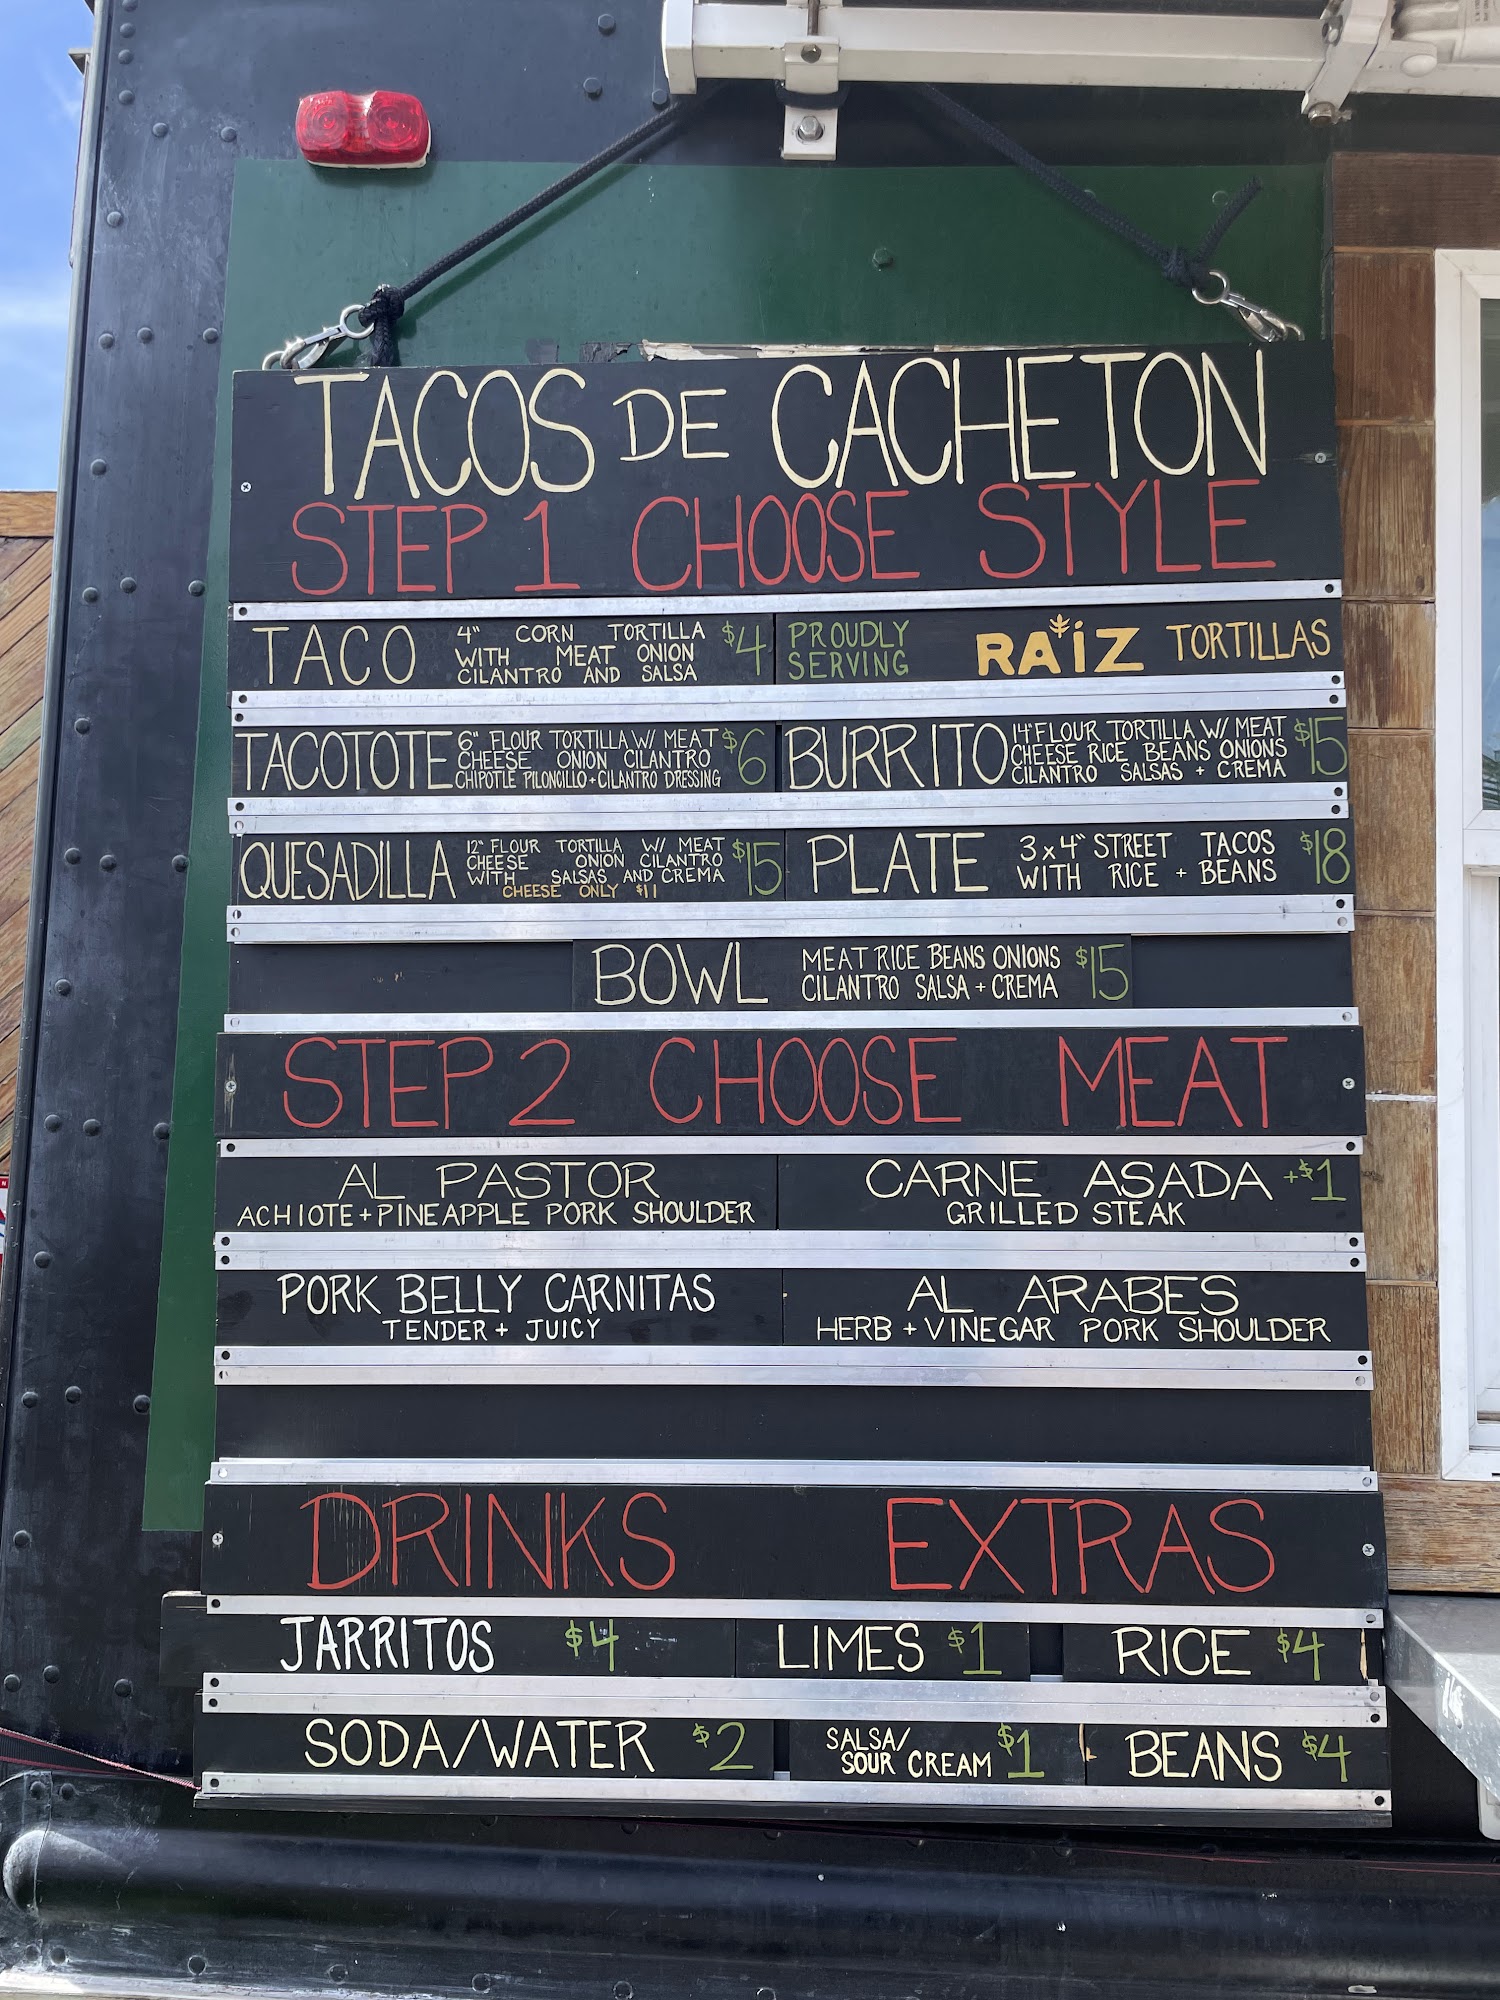 TACOS DE CACHETON
STEP 1 CHOOSE STYLE
TACO
4" CORN TORTILLA
WITH MEAT ONION
CILANTRO AND SALSA
$4
PROUDLY
SERVING
RAIZ TORTILLAS
TACOTOTE
6" FLOUR TORTILLA W/ MEAT
CHEESE ONION CILANTRO
CHIPOTLE PILONCILLO + CILANTRO DRESSING
$6
BURRITO
14" FLOUR TORTILLA W/ MEAT
CHEESE RICE BEANS ONIONS
CILANTRO SALSAS + CREMA
$15
QUESADILLA
12" FLOUR TORTILLA W/ MEAT
CHEESE ONION CILANTRO
WITH SALSAS AND CREMA
CHEESE ONLY $11
$15
PLATE
3x4" STREET TACOS
WITH RICE + BEANS
$18
BOWL
MEAT RICE BEANS ONIONS
CILANTRO SALSA + CREMA
$15
STEP 2 CHOOSE MEAT
AL PASTOR
ACHIOTE + PINEAPPLE PORK SHOULDER
CARNE ASADA +$1
GRILLED STEAK
PORK BELLY CARNITAS
TENDER + JUICY
AL ARABES
HERB + VINEGAR PORK SHOULDER
DRINKS
EXTRAS
JARRITOS $4
LIMES $1
RICE $4
SODA/WATER $2
SALSA/
SOUR CREAM
$1
BEANS $4